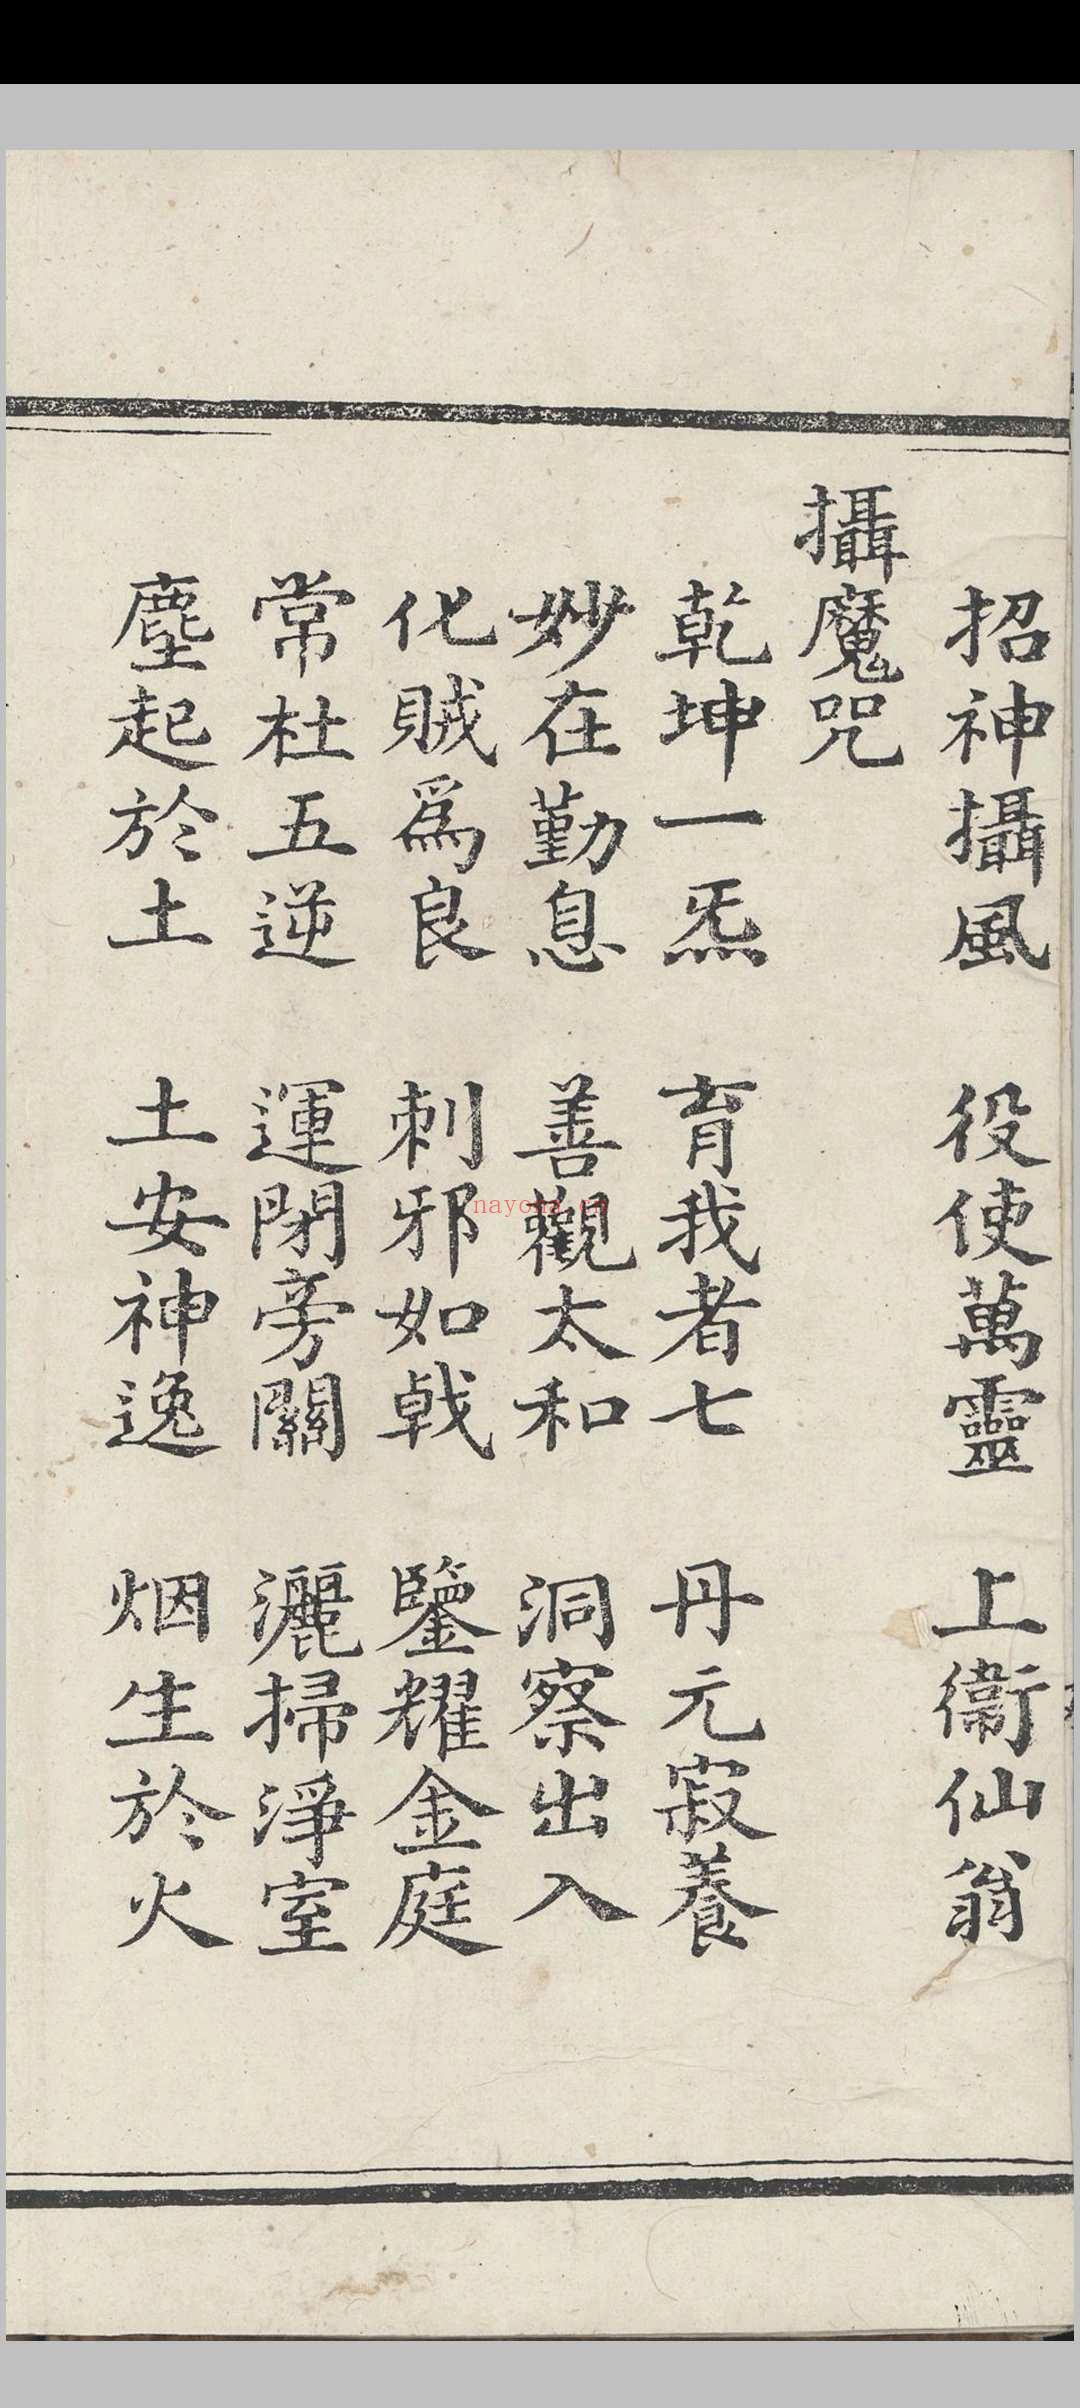 招神攝風 役使萬靈 上衞仙翁
攝魔咒
乾坤一炁 育我者七 丹元寂養
妙在勤息 善觀太和 洞察出入
化賊爲良 刺邪如戟 鑒耀金庭
常杜五逆 運閉旁關 灑掃淨室
塵起於土 土安神逸 烟生於火